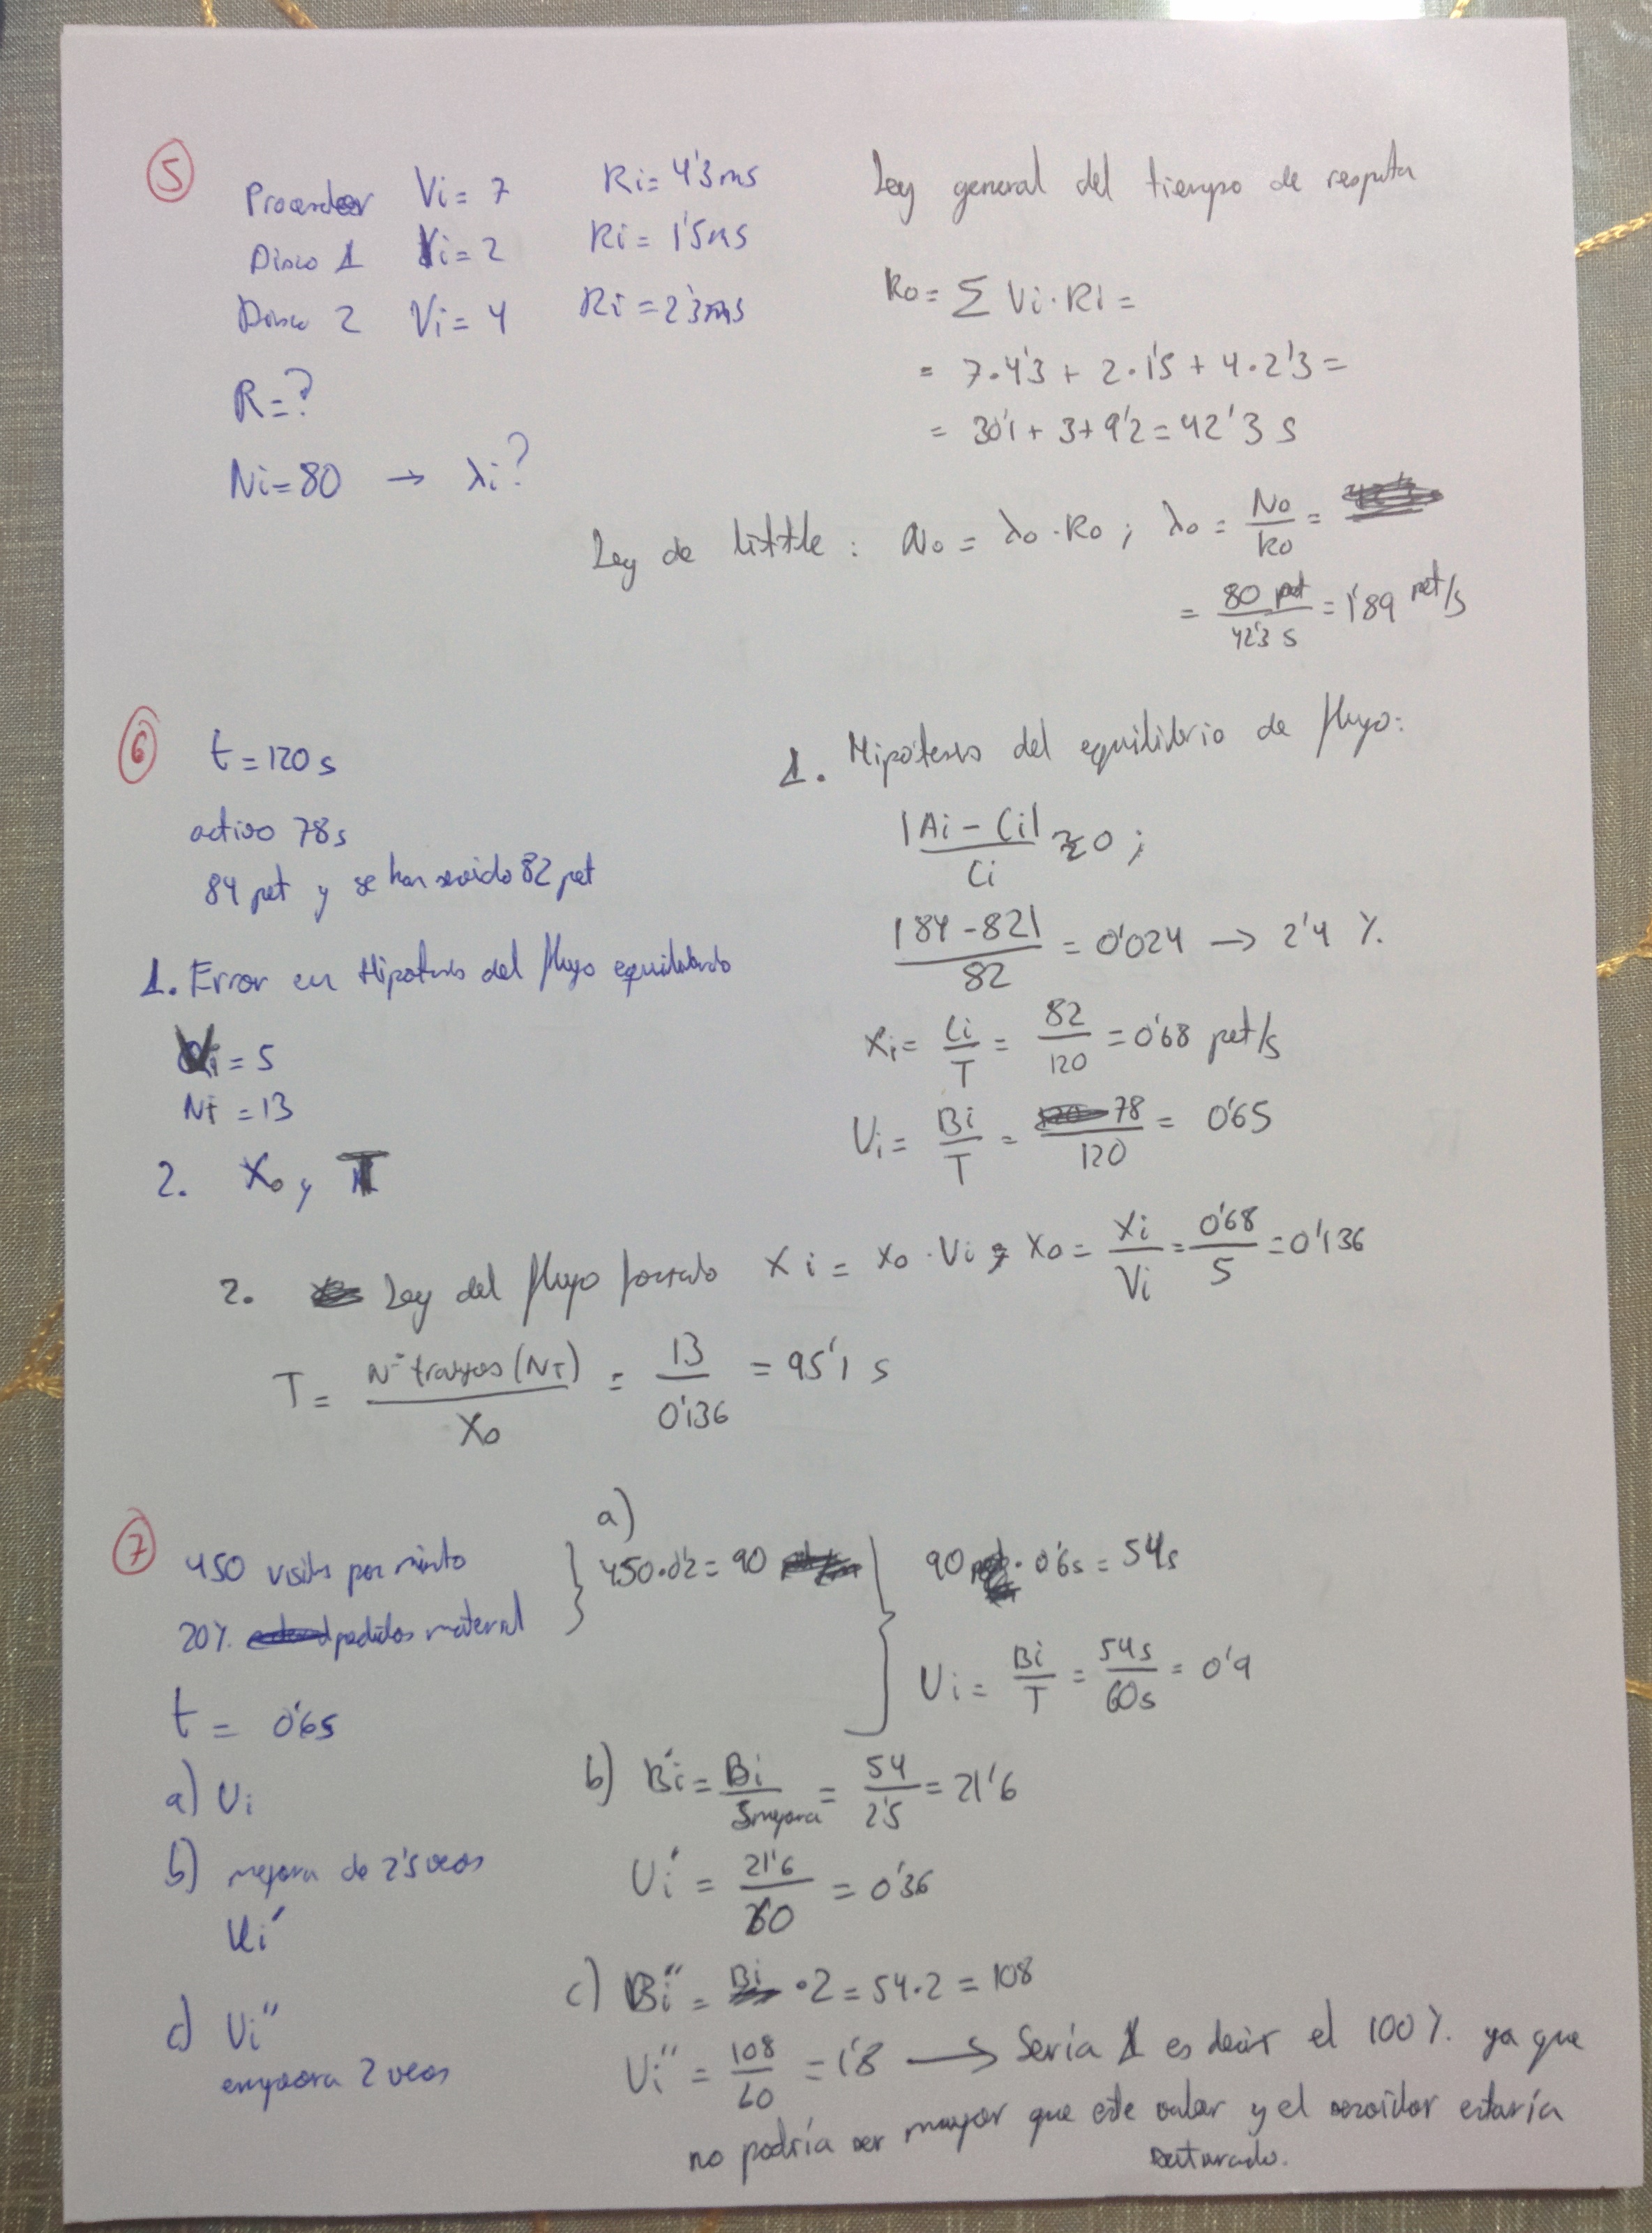 5
Procesador Vi = 7 Ri = 4'3ms
Disco 1 Vi = 2 Ri = 1'5ms
Disco 2 Vi = 4 Ri = 2'3ms
R = ?
Ni = 80 → λi?
Ley general del tiempo de resputa
Ro = Σ Vi · Ri =
= 7·4'3 + 2·1'5 + 4·2'3 =
= 30'1 + 3 + 9'2 = 42'3 s
Ley de little : No = λo · Ro ; λo = No/Ro =
= 80 pet / 42'3 s = 1'89 pet/s
6
t = 120 s
activo 78s
84 pet y se han servido 82 pet
1. Error en Hipotesis del flujo equilibrado
Vi = 5
NT = 13
2. Xo y T
1. Hipótesis del equilibrio de flujo:
|Ai - Ci| / Ci ≈ 0 ;
|84 - 82| / 82 = 0'024 → 2'4 %.
Xi = Ci/T = 82/120 = 0'68 pet/s
Ui = Bi/T = 78/120 = 0'65
2. Ley del flujo forzado Xi = Xo · Vi ; Xo = Xi/Vi = 0'68/5 = 0'136
T = Nº trayos (NT) / Xo = 13 / 0'136 = 95'1 s
7
450 visitas por minuto
20%. pedidos material
t = 0'6s
a) Ui
b) mejora de 2'5 veces
Ui'
c) Ui''
empeora 2 veces
a)
450·0'2 = 90
90 · 0'6s = 54s
Ui = Bi/T = 54s/60s = 0'9
b) Bi' = Bi/Smejora = 54/2'5 = 21'6
Ui' = 21'6/60 = 0'36
c) Bi'' = Bi · 2 = 54·2 = 108
Ui'' = 108/60 = 1'8 → Sería 1 es decir el 100%. ya que
no podría ser mayor que este valor y el servidor estaría
saturado.